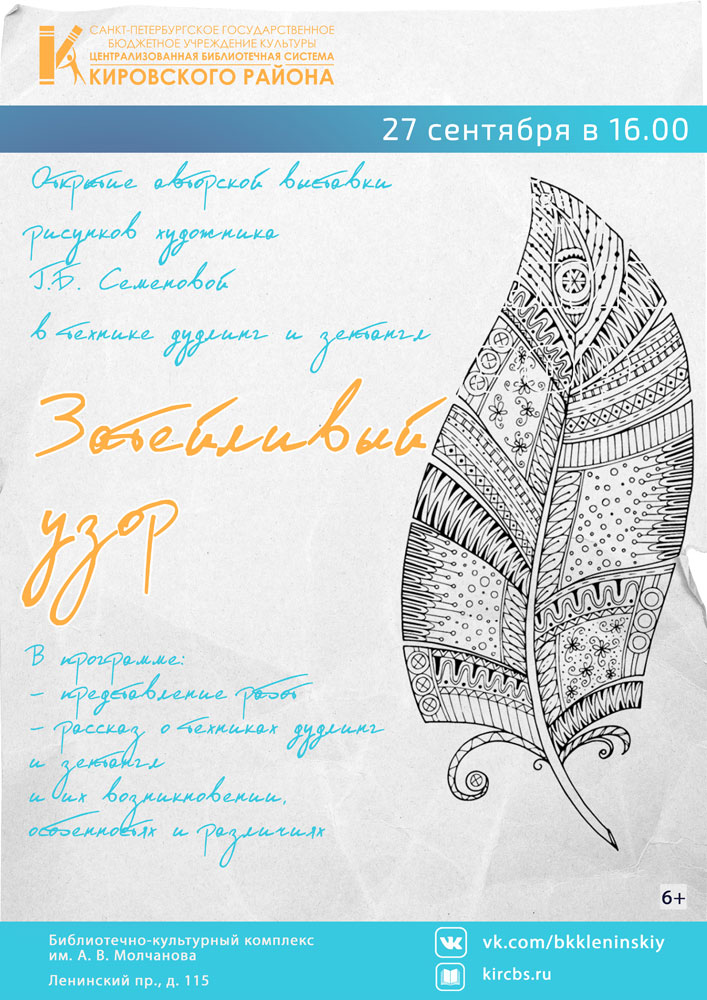 САНКТ-ПЕТЕРБУРГСКОЕ ГОСУДАРСТВЕННОЕ
БЮДЖЕТНОЕ УЧРЕЖДЕНИЕ КУЛЬТУРЫ
ЦЕНТРАЛИЗОВАННАЯ БИБЛИОТЕЧНАЯ СИСТЕМА
КИРОВСКОГО РАЙОНА
27 сентября в 16.00
Открытие авторской выставки
рисунков художника
Г.Б. Семеновой
в технике дудлинг и зентангл
Затейливый
узор
В программе:
- представление работ
- рассказ о техниках дудлинг
и зентангл
и их возникновении,
особенностях и различиях
6+
Библиотечно-культурный комплекс
им. А. В. Молчанова
Ленинский пр., д. 115
vk.com/bkkleninskiy
kircbs.ru